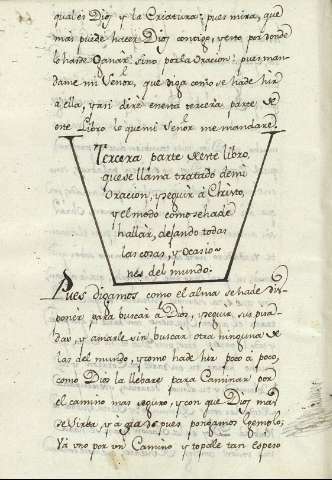 qual es Dios, y la Criatura: pues mira, que
mas puede hacer Dios consigo, y esto por donde
lo ha de Ganar? sino, por la Oracion: pues man-
dame mi Señor, que diga como se hade hir
a ella, y asi dire en esta tercera parte de
este Libro lo que mi Señor me mandare.
Tercera parte de este libro,
que se llama tratado de mi
Oracion, y seguir a Christo,
y el modo como se hade
hallar, dejando todas
las cosas, y Ocasio-
nes del mundo.
Pues digamos como el alma se hade dis-
poner para buscar a Dios, seguir sus pisa-
das, y amarle sin buscar otra ninguna de
las del mundo, y como hade hir poco a poco,
como Dios la llebare para Caminar por
el camino mas seguro, y con que Dios mas
se sirba, y a pues pongamos exemplo;
Ya uno por un Camino y topale tan espeso